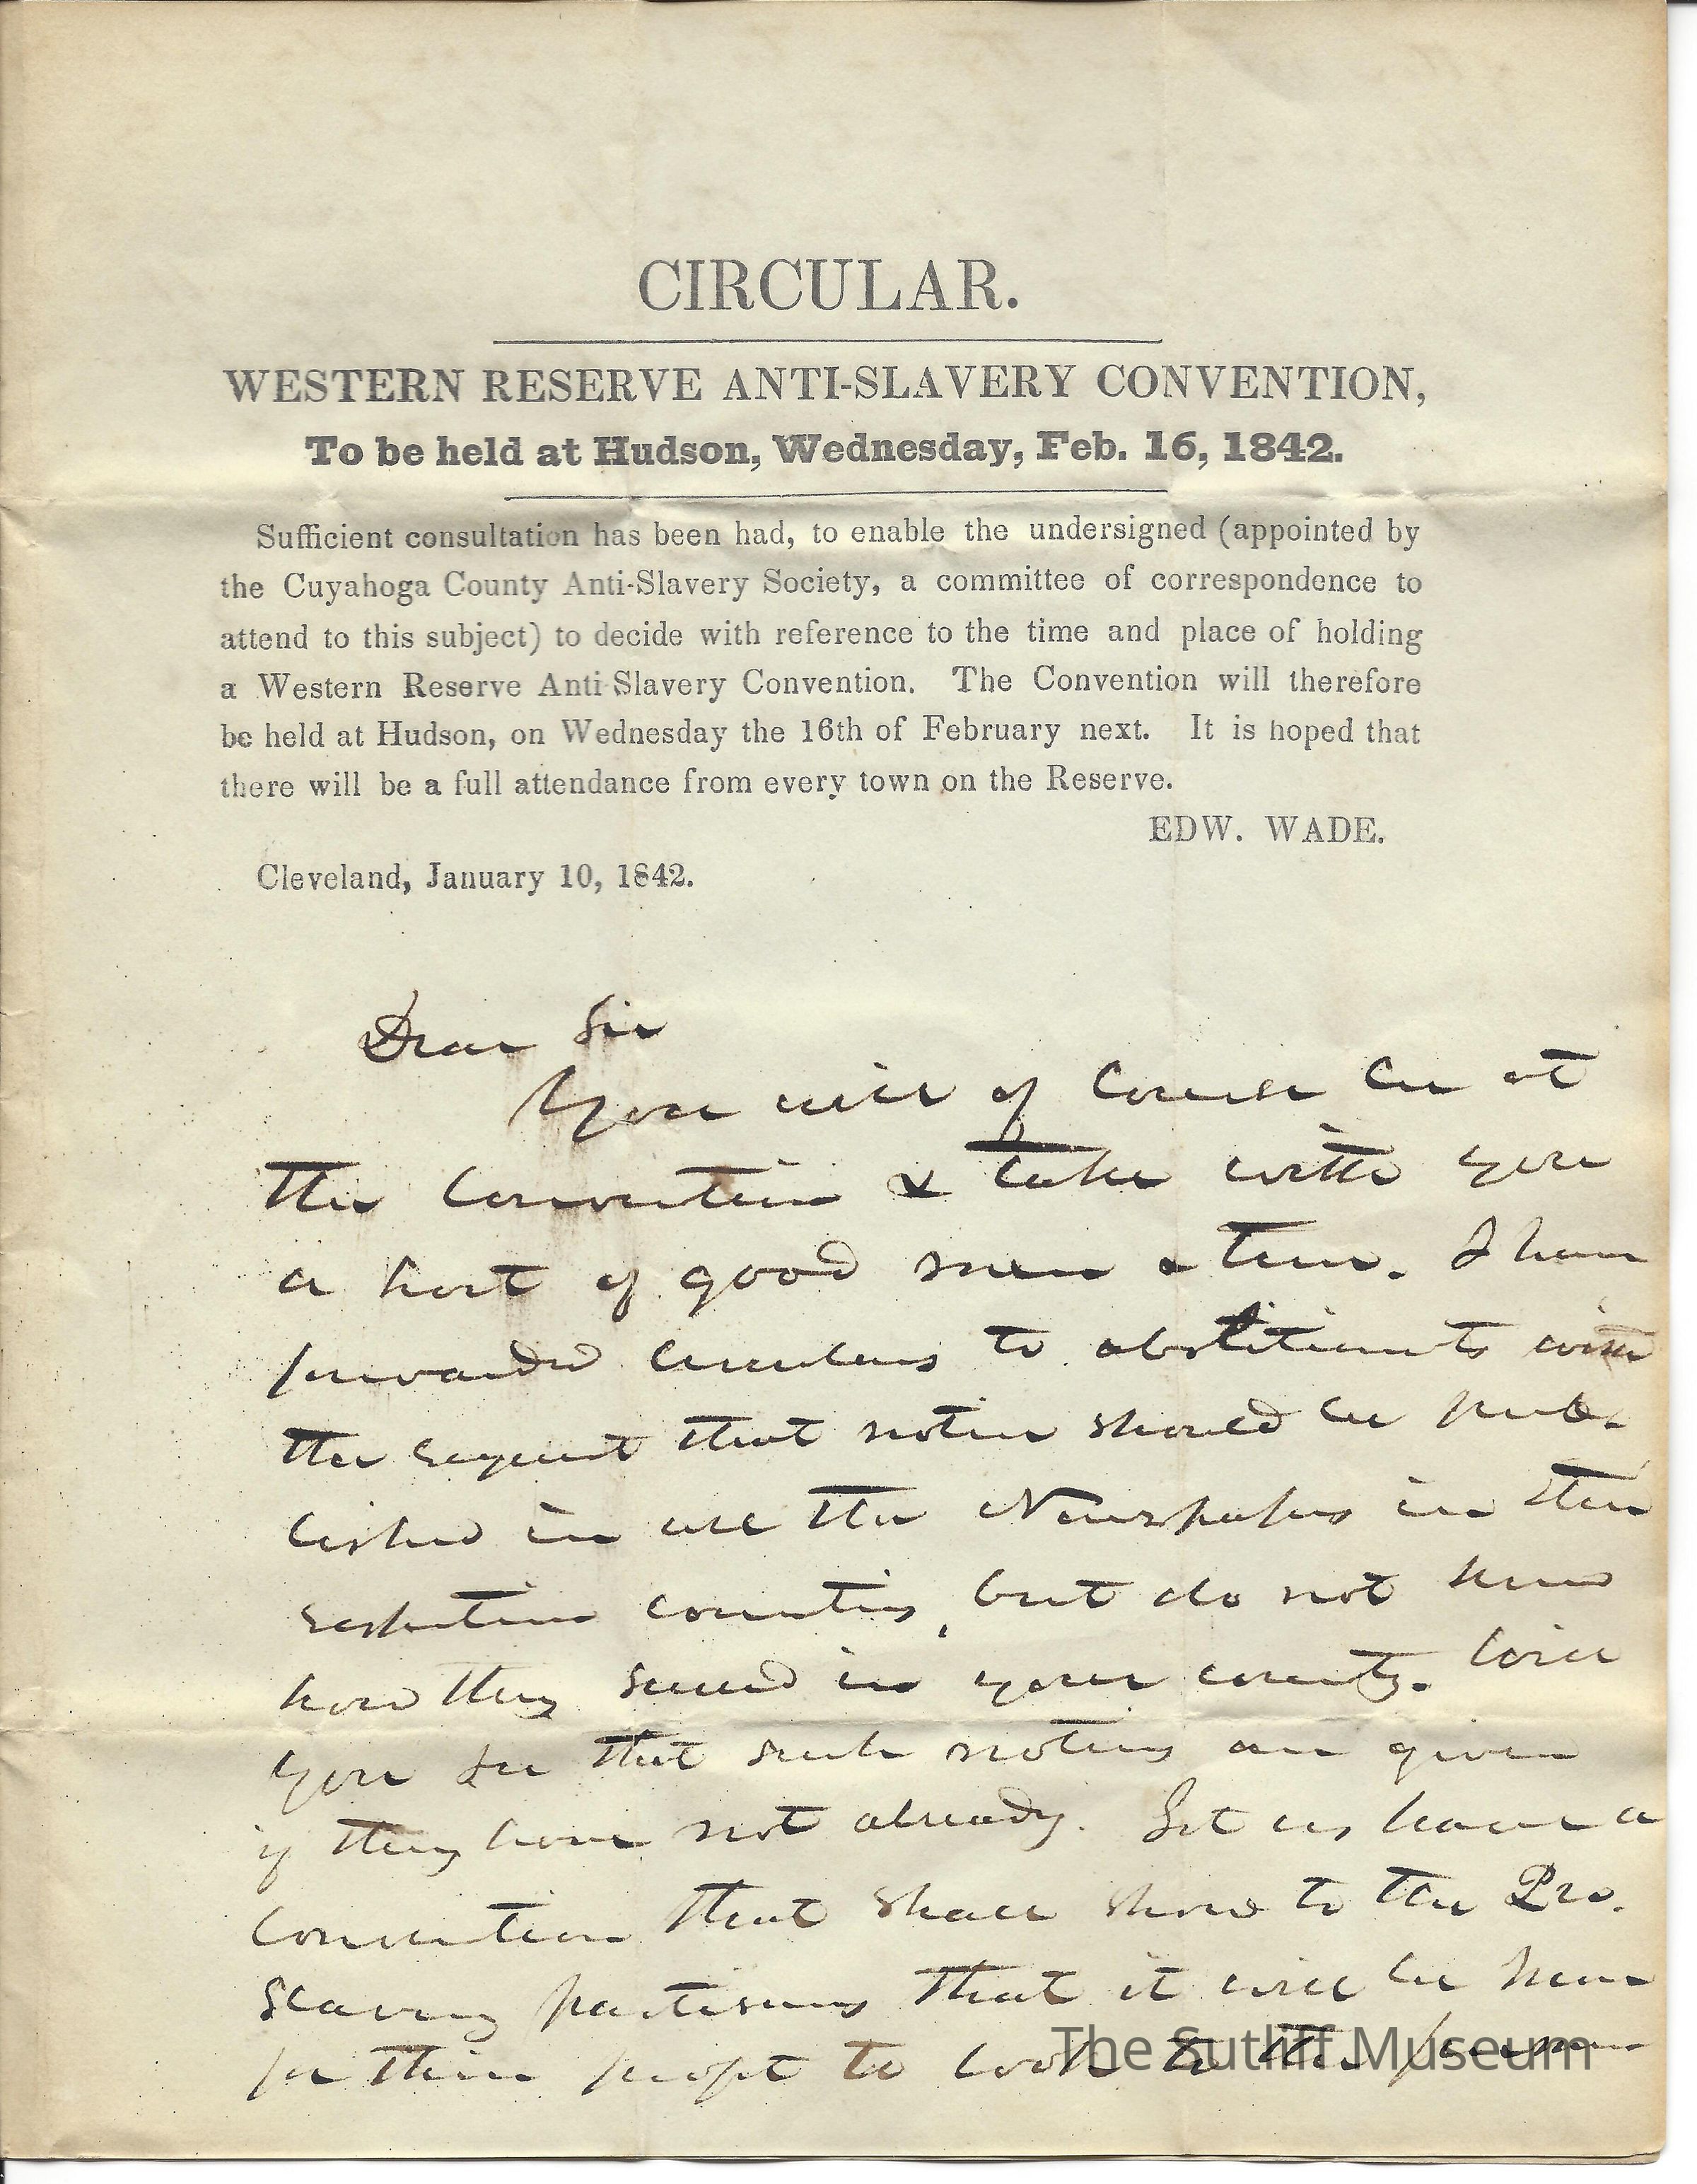 CIRCULAR.
WESTERN RESERVE ANTI-SLAVERY CONVENTION,
To be held at Hudson, Wednesday, Feb. 16, 1842.
Sufficient consultation has been had, to enable the undersigned (appointed by
the Cuyahoga County Anti-Slavery Society, a committee of correspondence to
attend to this subject) to decide with reference to the time and place of holding
a Western Reserve Anti-Slavery Convention. The Convention will therefore
be held at Hudson, on Wednesday the 16th of February next. It is hoped that
there will be a full attendance from every town on the Reserve.
EDW. WADE.
Cleveland, January 10, 1842.
Dear Sir
You will of course be at
the Convention & take with you
a host of good men & true. I have
forwarded circulars to abolitionists with
the request that notice should be pub-
lished in all the Newspapers in their
respective counties, but do not know
how they succeed in your county. Will
you see that such notices are given
if they have not already. Let us have a
Convention that shall show to the Pro.
Slavery partisans that it will be
for their profit to look to the
The Sutliff Museum